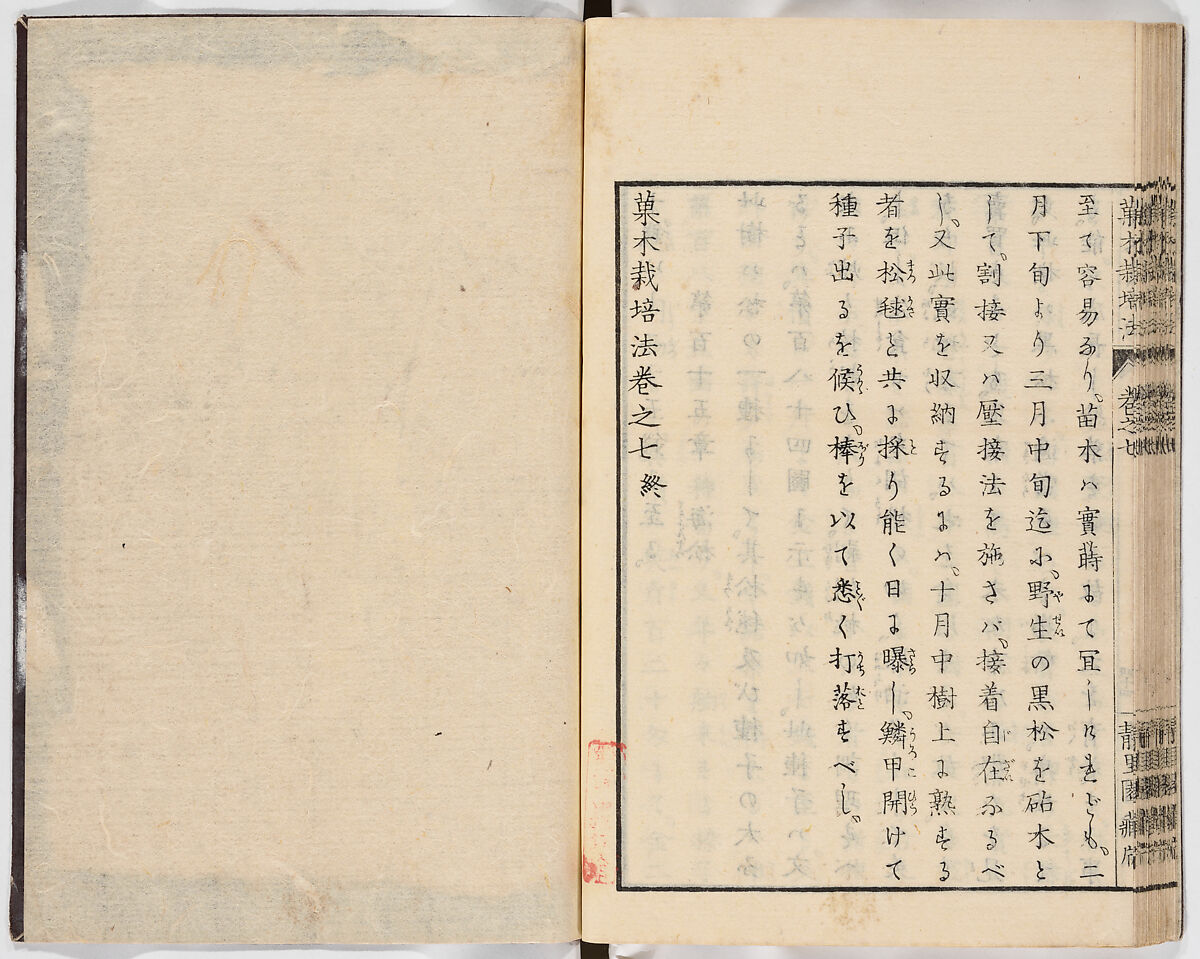 至て容易なり、苗木ハ實蒔にて冝しけれども、二
月下旬より三月中旬迄に、野生の黒松を砧木と
して、割接又ハ壓接法を施さバ、接着自在なるべ
し、又此實を収納するにハ、十月中樹上に熟する
者を松毬と共に採り能く日に曝し、鱗甲開けて
種子出るを候ひ、棒を以て悉く打落すべし、
菓木栽培法卷之七終
菓木栽培法
卷之七
靜里園藏梓